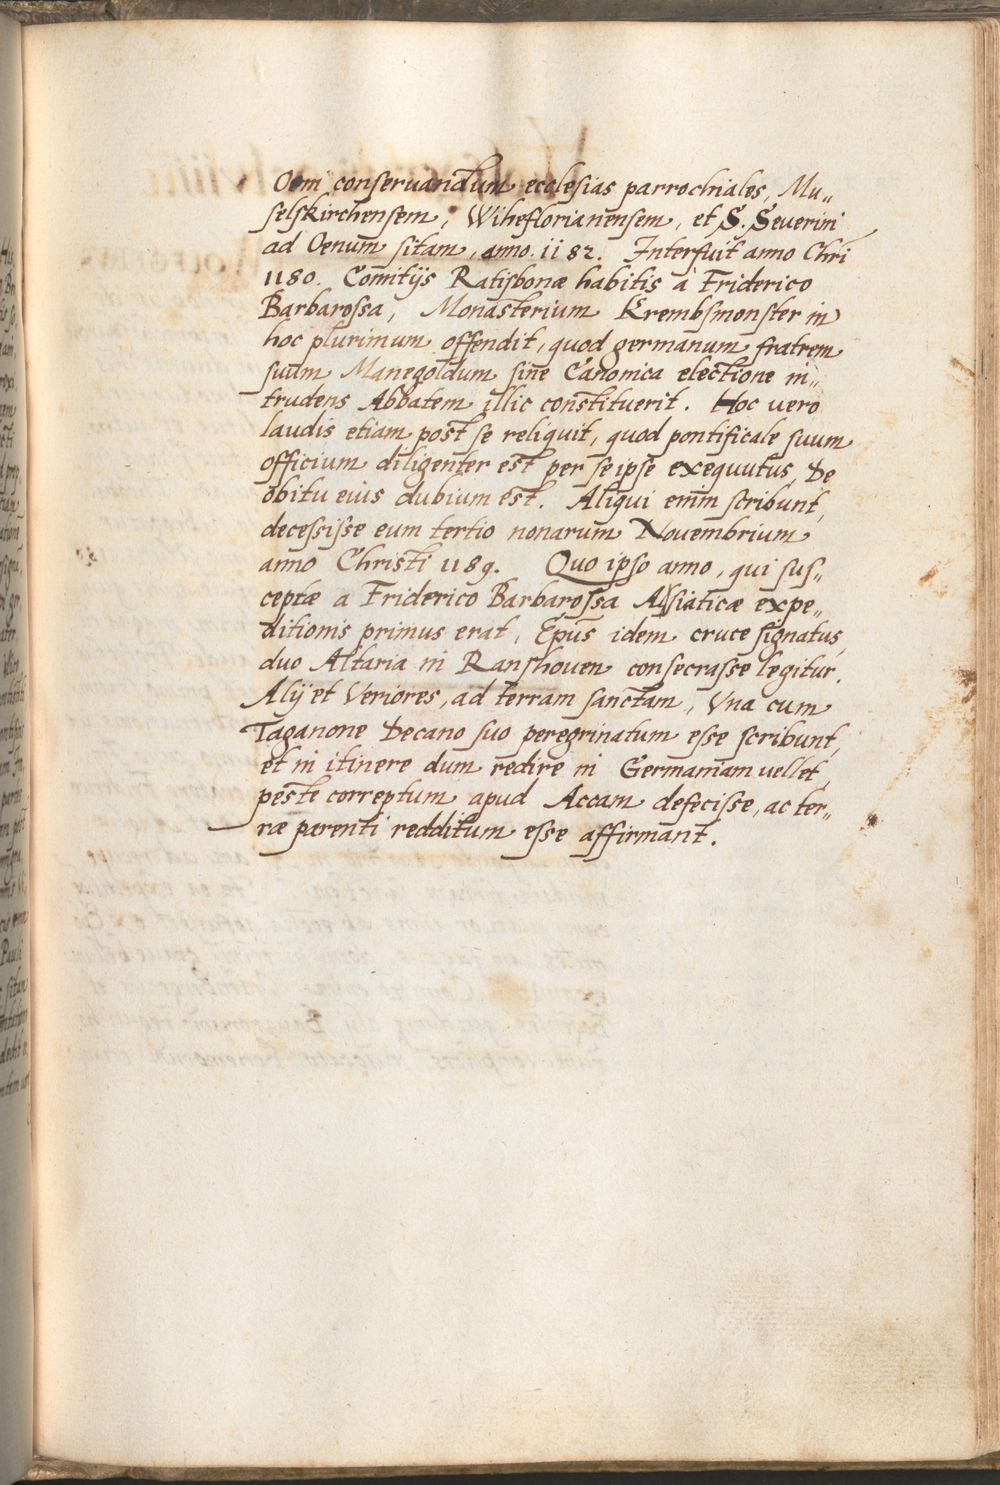 Oem conseruandum ecclesias parrochiales, Mu„
selskirchensem, Wiheflorianensem, et S. Seuerini
ad Oenum sitam, anno. 1182. Interfuit anno Chri
1180. Comitijs Ratisbonæ habitis à Friderico
Barbarossa, Monasterium Krembsmonster in
hoc plurimum offendit, quod germanum fratrem
suum Manegoldum sine Canonica electione in„
trudens Abbatem illic constituerit. Hoc vero
laudis etiam post se reliquit, quod pontificale suum
officium diligenter est per se ipse exequutus, De
obitu eius dubium est. Aliqui enim scribunt,
decessisse eum tertio nonarum Nouembrium
anno Christi 1189. Quo ipso anno, qui sus„
ceptæ a Friderico Barbarossa Asiaticæ expe„
ditionis primus erat, Epus idem cruce signatus,
duo Altaria in Ranshouen consecrasse legitur.
Alij et Veriores, ad terram sanctam, Vna cum
Taganone Decano suo peregrinatum esse scribunt,
et in itinere dum redire in Germaniam vellet,
peste correptum apud Accam defecisse, ac ter„
ræ parenti redditum esse affirmant.